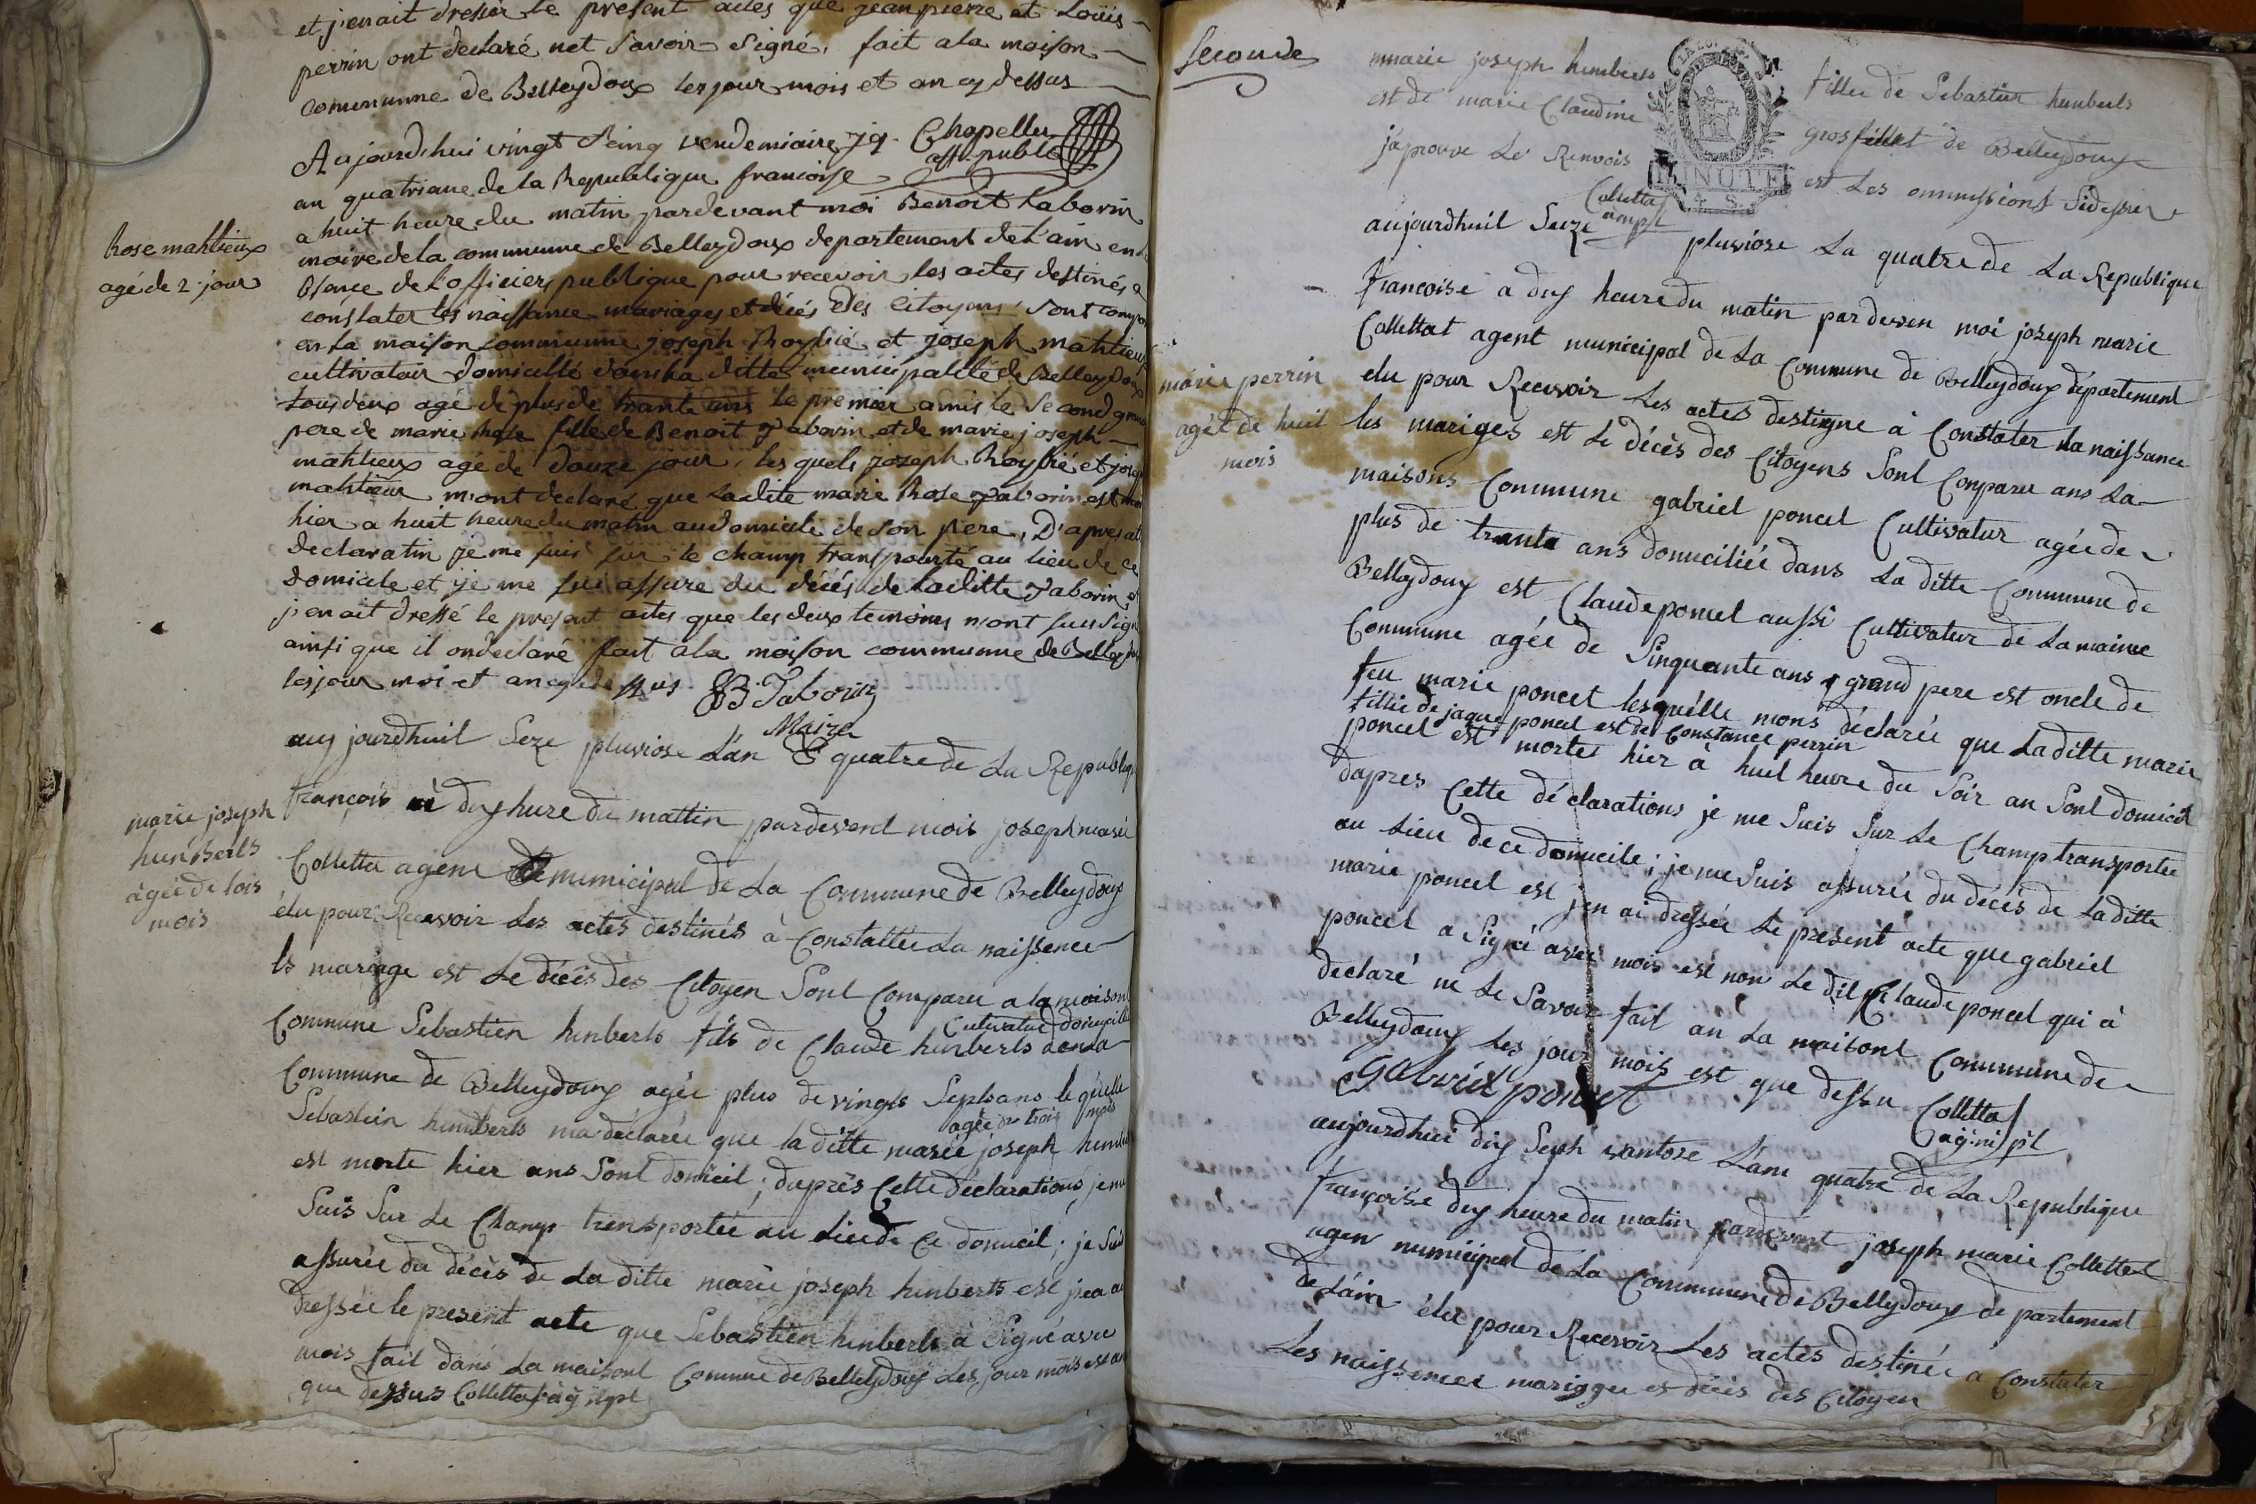 et j'en ait dressér le present actes que jean pierre et Louis
perrin ont declaré net savoir signé, fait a la maison
comununne de Belleydoux les jour mois et an cy dessus
Chapellu
off. public
Aujourdhui vingt Seinq vendemiaire
an quatriaue de la Republique francoise
a huit heure du matin pardevant moi Benoit Taborin
maire de la communne de Belleydoux departemant de L'ain en
bsance de Lofficier publique pour recevoir les actes destinés a
constater les naissance mariages et décés des Citoyens sont
en La maison communne joseph Roybié et joseph mahtieux
cultivatoir domicillé dans La ditte municipalité de Belleydoux
tous deux age de plus de trante ans le premier amis le second
pere de marie Rose fille de Benoit Taborin et de marie joseph
mahtieux agé de douze jour, les quels joseph Roybié et
mahtieux m'ont declaré que Ladite marie Rose Taborin est
hier a huit heure du matin au domicile de son pere, D'apres
declaratin je me suis sur le champ transpourté au lieu de ce
domicile et je me sui assure du décés de Laditte Taborin
j'en ait dressé le present actes que les deux temoins n'ont
ainsi que il on declaré fait a la moison communne de
les jour moi et an cy dessus. B. Taborin
Maire
Rose mahtieux
agé de 2 jour
auj jourdhuil Seze pluviose L'an quatre de La Republiq
françois a dix hure du mattin pardevend mois joseph marié
Colletta agent municipal de La Commune de Belleydoux
élu pour Recevoir Les actes destinés à Constattée La naissence
ls mariage est Le décès des Citoyen Sont Comparu a la moison
Cultivatur domicillé
Commune Sebastien hinberls fils de Claude hinberls dans La
Commune de Belleydoux agée plus de vingts Sept ans le quelle
agée de trois mois
Sebastien humberls ma déclarée que la ditte marié joseph
est morte hier ans Sont domicil; dapres Cette déclarations je
Suis Sur Le Champ transportée au Lieu de Ce domicil; je Suis
assurée du décès de La ditte marie joseph hinberls est
dressée le present acte que Sebastien hinberls à Signé avec
mois fait dans La maisont Comune de Belleydoux Les jour mois est
que dessus Colletta
marie joseph
humBerls
agée de tois
mois
Seconde
marie joseph humberls fillee de Sebastien humberls
est de marie Claudine grosfillet de Belleydoux
japrouve Le Renvois est Les ommissions Sidessu
Colletta
MINUTE
aujourdhuil Seize pluviose La quatre de La Republique
francoise a dix heure du matin pardeven moi joseph marie
Collettat agent municipal de La Commune de Belleydoux département
elu pour Recevoir Les actes destigne à Constater La naissance
les mariges est Le décès des Citoyens Sont Comparu ans La
maisons Commune gabriel poncet Cultivatur agée de
plus de trante ans domiciliée dans La ditte Commune de
Belleydoux est Claude poncet aussi Cultivateur de La maime
Commune agée de Sinquante ans grand pere est oncle de
feu marie poncet lesquélle mons déclarée que La ditte marie
fillie de jaque poncet est de Constance perrin
poncet est morte hier à huit heure du Soir an Sont domicil
dapres Cette déclarations je me Suis Sur Le Champ transportée
au Lieu de ce domicile; je me Suis assurée du décès de La ditte
marie poncet est jen ai dressée Le present acte que gabriel
poncet a Signé avec mois est non Le dit Claude poncet qui à
declaré ne Le Savoir fait an La maisont Commune de
Belleydoux Les jour mois est que dessu Colletta
Gabriel poncet
marie perrin
agée de huit
mois
aujourdhui dix Seph vantose L'ann quatre de La Republique
françoise dix heure du matin pardevant joseph marie Collettat
agen municipal de La Commune de Belleydoux departement
de L'ain élu pour Recevoir Les actes destinée a Constater
Les naissences marigge es décis des Citoyen